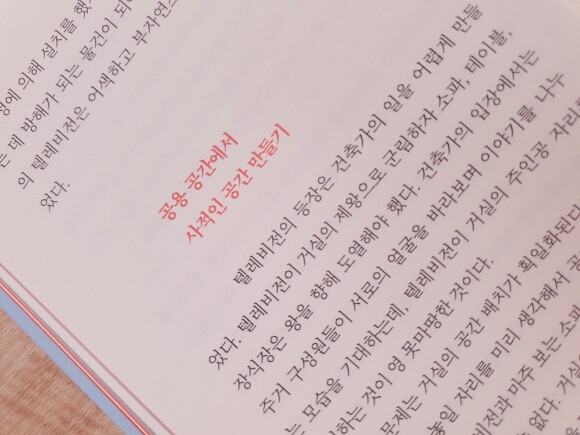 경에 의해 설치를 했
는 데 방해가 되는 물건이 되
의 텔레비전은 어색하고 부자연스
었다.
공용 공간에서
사적인 공간 만들기
텔레비전의 등장은 건축가의 일을 어렵게 만들
었다. 텔레비전이 거실의 제왕으로 군림하자 소파, 테이블,
장식장은 왕을 향해 도열해야 했다. 건축가의 입장에서는
주거 구성원들이 서로의 얼굴을 바라보며 이야기를 나누
는 모습을 기대하는데, 텔레비전이 거실의 주인공 자리를
하는 것이 영 못마땅한 것이다.
문제는 거실의 공간 배치가 획일화된다
놓일 자리를 미리 생각해서 공
비전과 마주 보는 소파
없다. 거실